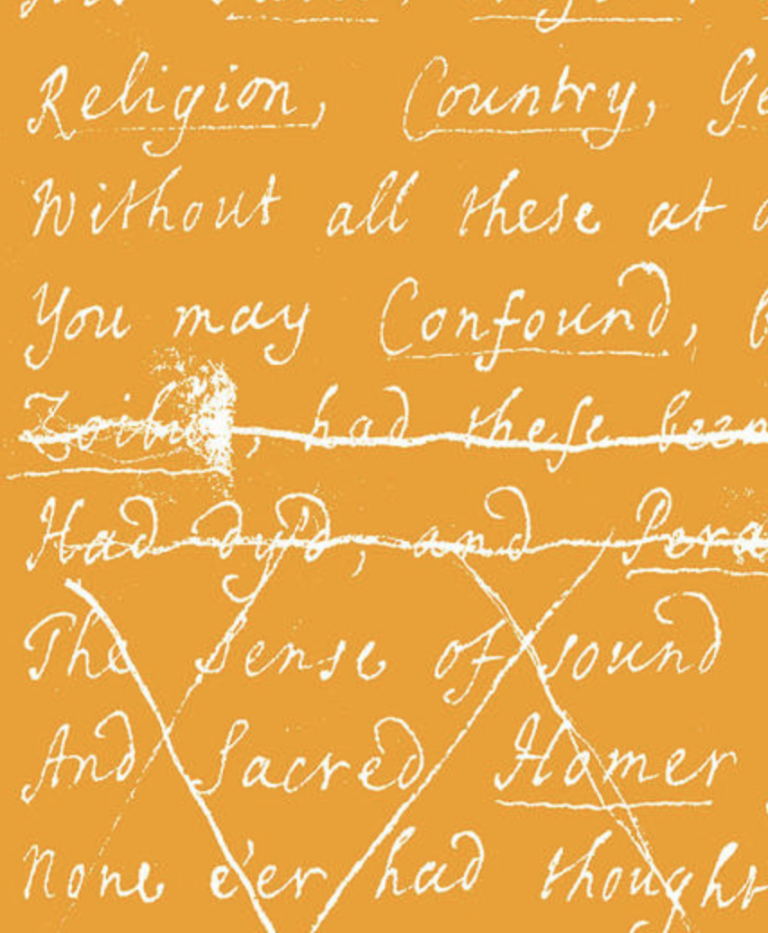 Religion, Country, Ge
Without all these at
You may Confound,
Zoilus, had these been
Had dy'd, and Pera
The Sense of sound
And Sacred Homer
None e'er had thought